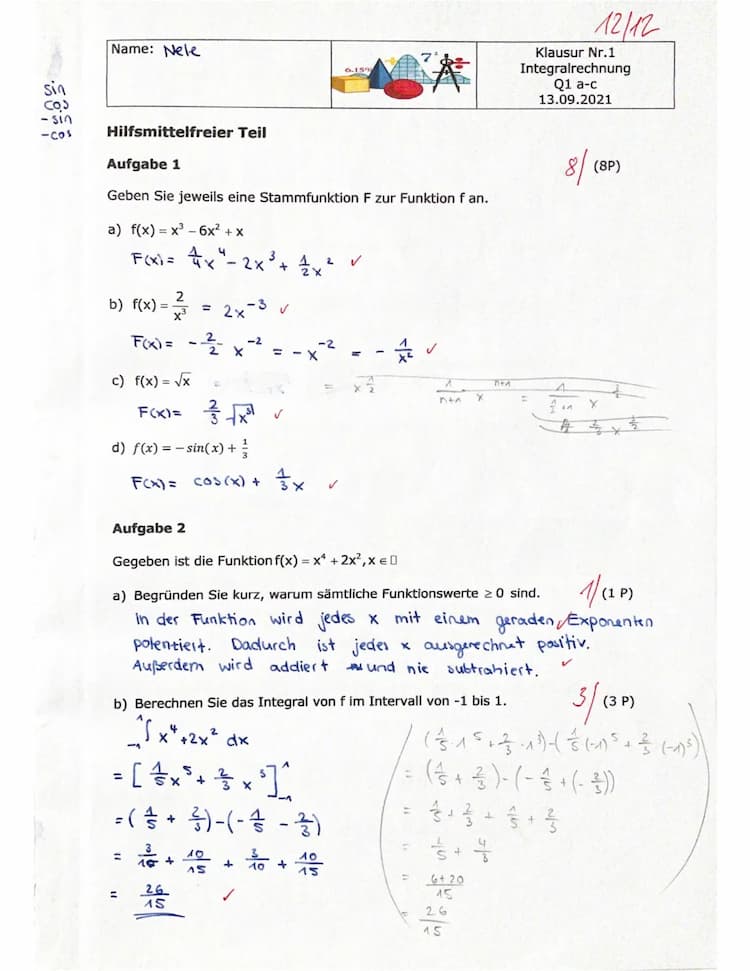 12/12
Name: Nele
6.15%
7²
Klausur Nr.1
Integralrechnung
Q1 a-c
13.09.2021
sin
cos
-sin
-cos
Hilfsmittelfreier Teil
Aufgabe 1
8/ (8P)
Geben Sie jeweils eine Stammfunktion F zur Funktion f an.
a) f(x) = x³ – 6x² + x
F(x) = 1/4 x⁴ - 2x³ + 1/2 x² ✓
b) f(x) = 2/x³ = 2x⁻³ ✓
F(x) = - 2/2 x⁻² = -x⁻² = - 1/x² ✓
c) f(x) = √x = x^1/2
F(x) = 2/3 √x³ ✓
d) f(x) = – sin(x) + 1/3
F(x) = cos(x) + 1/3 x ✓
Aufgabe 2
Gegeben ist die Funktion f(x) = x⁴ + 2x², x ∈ ▯
a) Begründen Sie kurz, warum sämtliche Funktionswerte ≥ 0 sind. 1/ (1 P)
In der Funktion wird jedes x mit einem geraden Exponenten
potenziert. Dadurch ist jedes x ausgerechnet positiv.
Außerdem wird addiert und nie subtrahiert. ✓
b) Berechnen Sie das Integral von f im Intervall von -1 bis 1. 3/ (3 P)
₋₁∫¹ x⁴+2x² dx
= [1/5 x⁵ + 2/3 x³]¹₋₁
= (1/5 + 2/3) - (-1/5 - 2/3)
= 3/10 + 10/15 + 3/10 + 10/15
= 26/15 ✓
(1/5 · 1⁵ + 2/3 · 1³) - (1/5 (-1)⁵ + 2/3 (-1)³)
= (1/5 + 2/3) - (-1/5 + (-2/3))
= 1/5 + 2/3 + 1/5 + 2/3
= 2/5 + 4/3
= 6+20/15
= 26/15